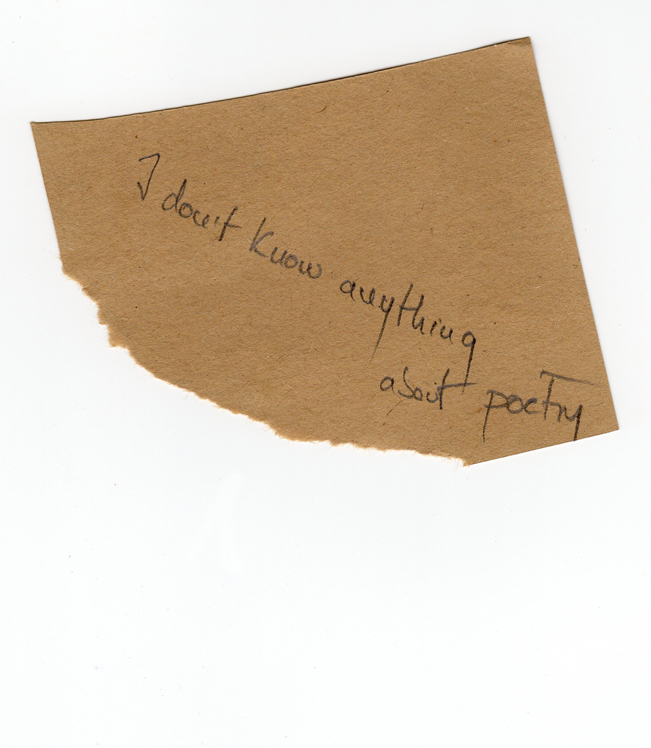 I don't know anything
about poetry